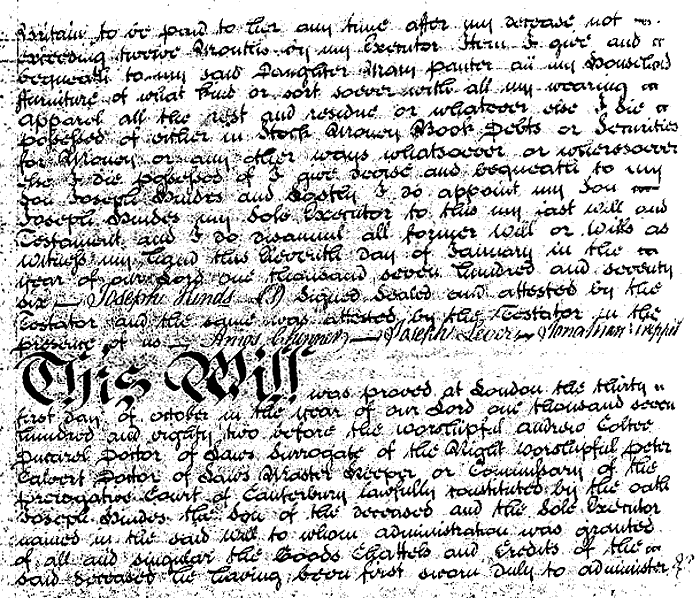 Britain to be paid to her any time after my decease not
exceeding twelve Months by my Executor Item I give and
bequeath to my said Daughter Mary panter all my Household
ffurniture of what kind or sort soever with all my wearing
apparel all the rest and residue or whatever else I die
possessed of either in Stock Money Book Debts or Securities
for Money or any other ways whatsoever or wheresoever
else I die possessed of I give devise and bequeath to my
Son Joseph Hindes and Lastly I do appoint my Son
Joseph Hindes my Sole Executor to this my last will and
Testament and I do disannul all former Will or Wills as
witness my Hand this Eleventh Day of January in the
year of our Lord one thousand seven hundred and seventy
six — Joseph Hinds Signed Sealed and attested by the
Testator and the same was attested by the Testator in the
presence of us — Amos — Joseph Lever — Jonathan
This Will was proved at London the thirty
first day of october in the year of our Lord one thousand seven
hundred and eighty two before the worshipful andrew Coltee
Ducarel Doctor of Laws Surrogate of the Right worshipful Peter
Calvert Doctor of Laws Master Keeper or Commissary of the
prerogative Court of Canterbury lawfully constituted by the oath
Joseph Hindes the Son of the deceased and the Sole Executor
named in the said will to whom administration was granted
of all and singular the Goods Chattels and Credits of the
said deceased he having been first sworn duly to administer